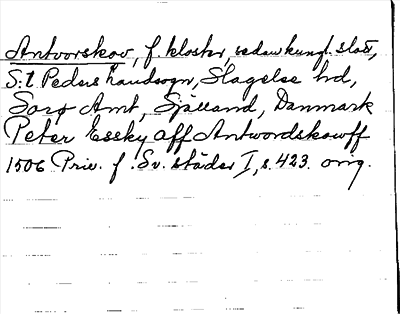 Antvorskov, f. kloster, sedan kungl. slott,
S:t Peders landsogn, Slagelse hd,
Sorø Amt, Själland, Danmark
Peter Essky aff Antwordskowff
1506 Priv. f. Sv. städer I, s. 423. orig.